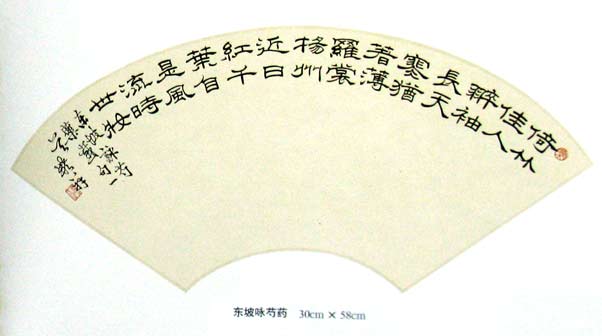 倚竹
佳人
翠袖
長天
寒猶
著薄
羅裳
楊州
近日
紅千
葉自
是風
流時
世妝
东坡詠芍
藥句一
东坡咏芍药 30cm × 58cm